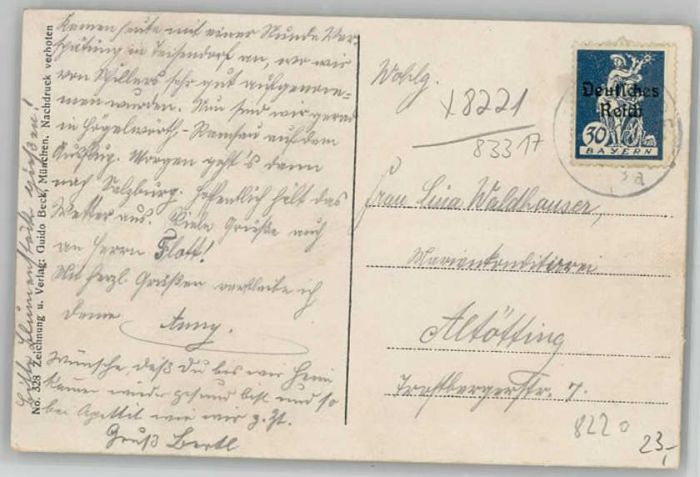 Kamen heute mit einer Stunde Ver-
spätung in Teisendorf an, wo wir
von Schillers sehr gut aufgenom-
men wurden. Nun sind wir gerad
in Högelwörth-Ramsau auf dem
Ausflug. Morgen geht's dann
nach Salzburg. Hoffentlich hält das
Wetter aus. Viele Grüße auch
an Herrn Flott!
Mit herzl. Grüßen verbleibe ich
Deine Anny.
Wünsche, daß Du bis wir Heim
kamen wieder gesund bist und so
bei Apettit wie wir z. Zt.
Gruß Bertl
Bitte Blumenstock gießen!
No. 328 Zeichnung u. Verlag: Guido Beck, München. Nachdruck verboten
Wohlg.
x8221
83317
Deutsches
Reich
30
BAYERN
Frau Lina Waldhauser,
Marienkonditorei
Altötting
Trostbergerstr. 7.
8220
23,-